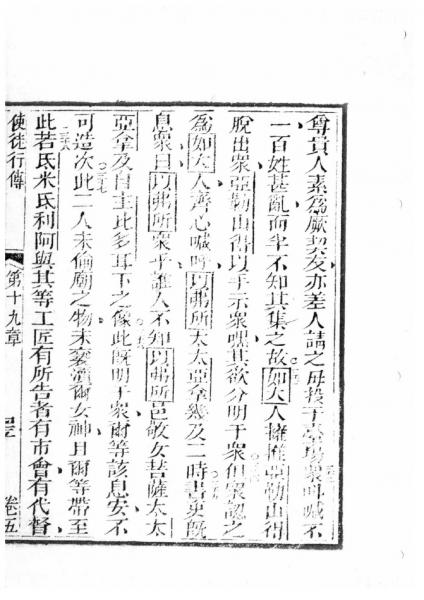 尊貴人素為厥契友亦差人請之毋投于臺塲衆呌喊不
一百姓甚亂而半不知其集之故如大人擁推亞勒山得
脫出衆亞勒山得以手示衆嘿其欲分明于衆但衆認之
為如大人齊心喊呼以弗所太太亞拿幾及二時書吏既
息衆曰以弗所衆乎誰人不知以弗所邑敬女菩薩太太
亞拿及自主此多耳下之像此既明于衆爾等該息安不
可造次此二人未偷廟之物未褻瀆爾女神且爾等帶至
此若氐米氐利阿與其等工匠有所告者有市會有代督
使徒行傳 第十九章 卷五